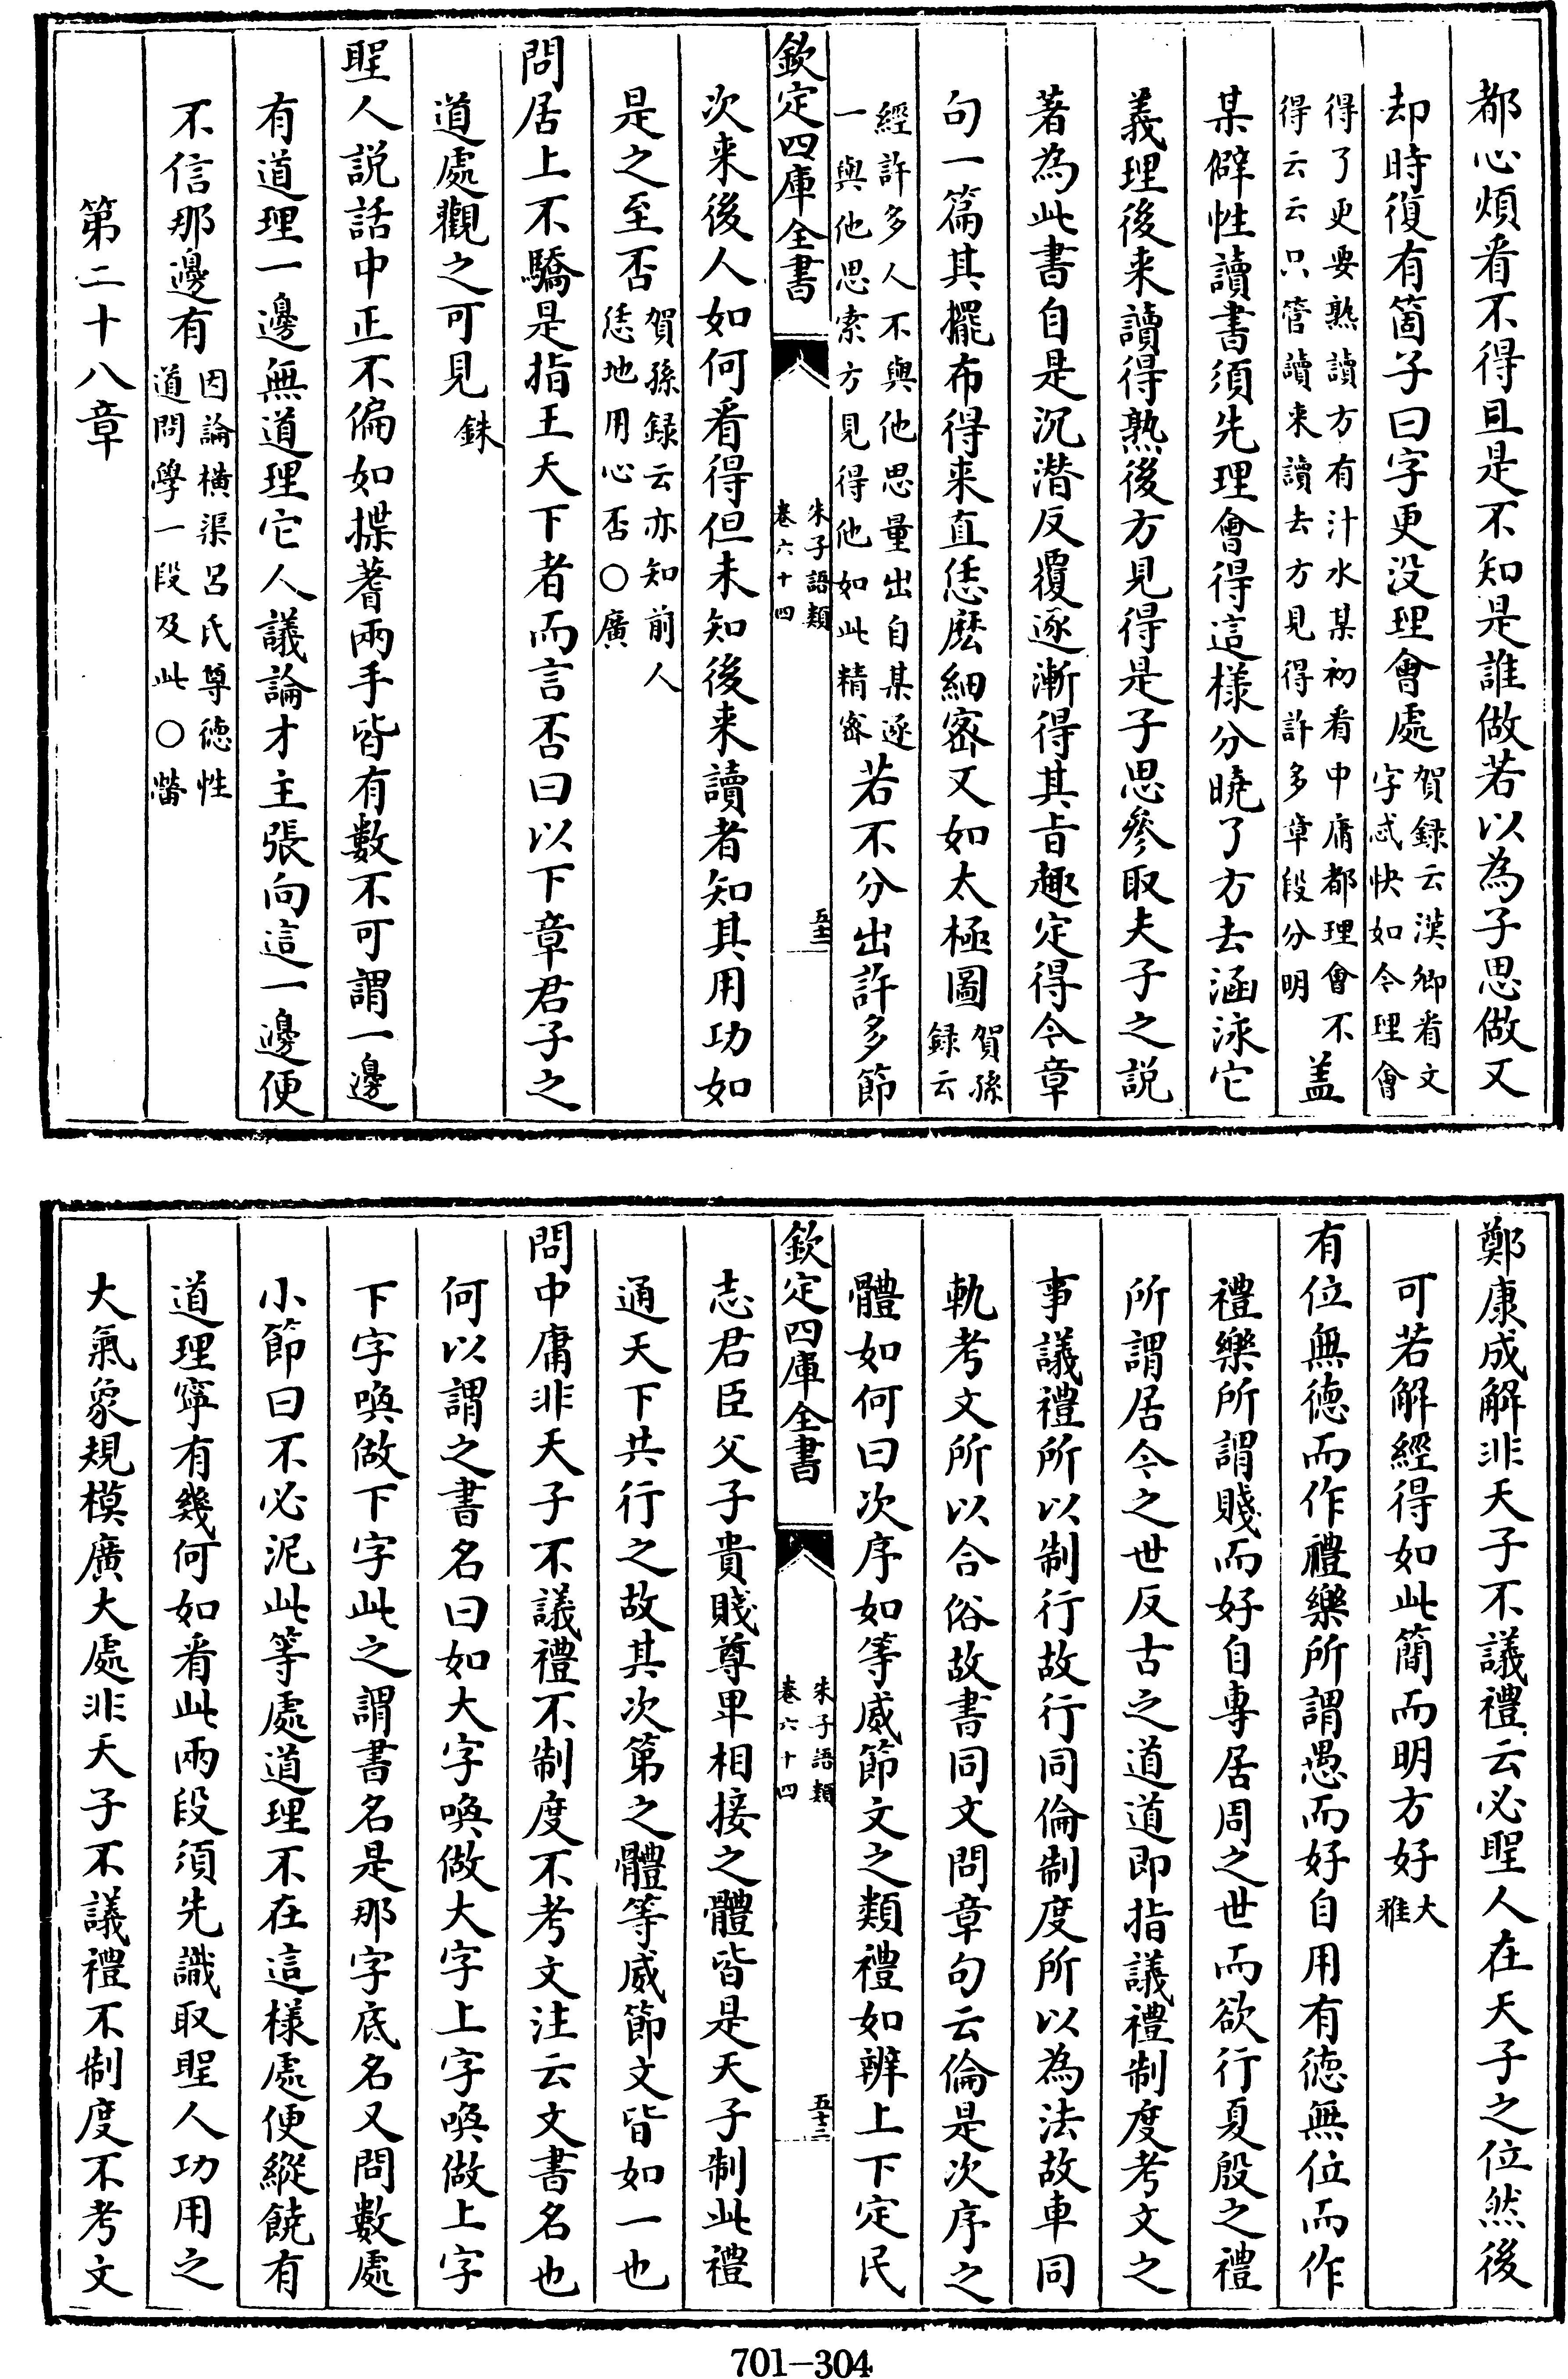 都心煩看不得且是不知是誰做若以為子思做又
却時復有箇子曰字更没理會處賀録云漢卿看文字忒快如今理會
得了更要熟讀方有汁水某初看中庸都理會不得云云只管讀来讀去方見得許多章段分明盖
某僻性讀書須先理會得這様分曉了方去涵泳它
義理後来讀得熟後方見得是子思參取夫子之説
著為此書自是沉潜反覆逐漸得其㫖趣定得今章
句一篇其擺布得来直恁麽細宻又如太極圖賀孫録云
經許多人不與他思量出自某逐一與他思索方見得他如此精宻若不分出許多節
欽定四庫全書
朱子語類
卷六十四
五十二
次来後人如何看得但未知後来讀者知其用功如
是之至否賀孫録云亦知前人恁地用心否○廣
問居上不驕是指王天下者而言否曰以下章君子之
道處觀之可見銖
聖人説話中正不偏如揲蓍兩手皆有數不可謂一邊
有道理一邊無道理它人議論才主張向這一邊便
不信那邊有因論横渠吕氏尊徳性道問學一段及此○㽦
第二十八章
鄭康成解非天子不議禮云必聖人在天子之位然後
可若解經得如此簡而明方好大雅
有位無徳而作禮樂所謂愚而好自用有徳無位而作
禮樂所謂賤而好自専居周之世而欲行夏殷之禮
所謂居今之世反古之道道即指議禮制度考文之
事議禮所以制行故行同倫制度所以為法故車同
軌考文所以合俗故書同文問章句云倫是次序之
體如何曰次序如等威節文之類禮如辨上下定民
欽定四庫全書
朱子語類
卷六十四
五十三
志君臣父子貴賤尊卑相接之體皆是天子制此禮
通天下共行之故其次第之體等威節文皆如一也
問中庸非天子不議禮不制度不考文注云文書名也
何以謂之書名曰如大字喚做大字上字喚做上字
下字喚做下字此之謂書名是那字底名又問數處
小節曰不必泥此等處道理不在這様處便縱饒有
道理寧有幾何如看此兩段須先識取聖人功用之
大氣象規模廣大處非天子不議禮不制度不考文
701-304